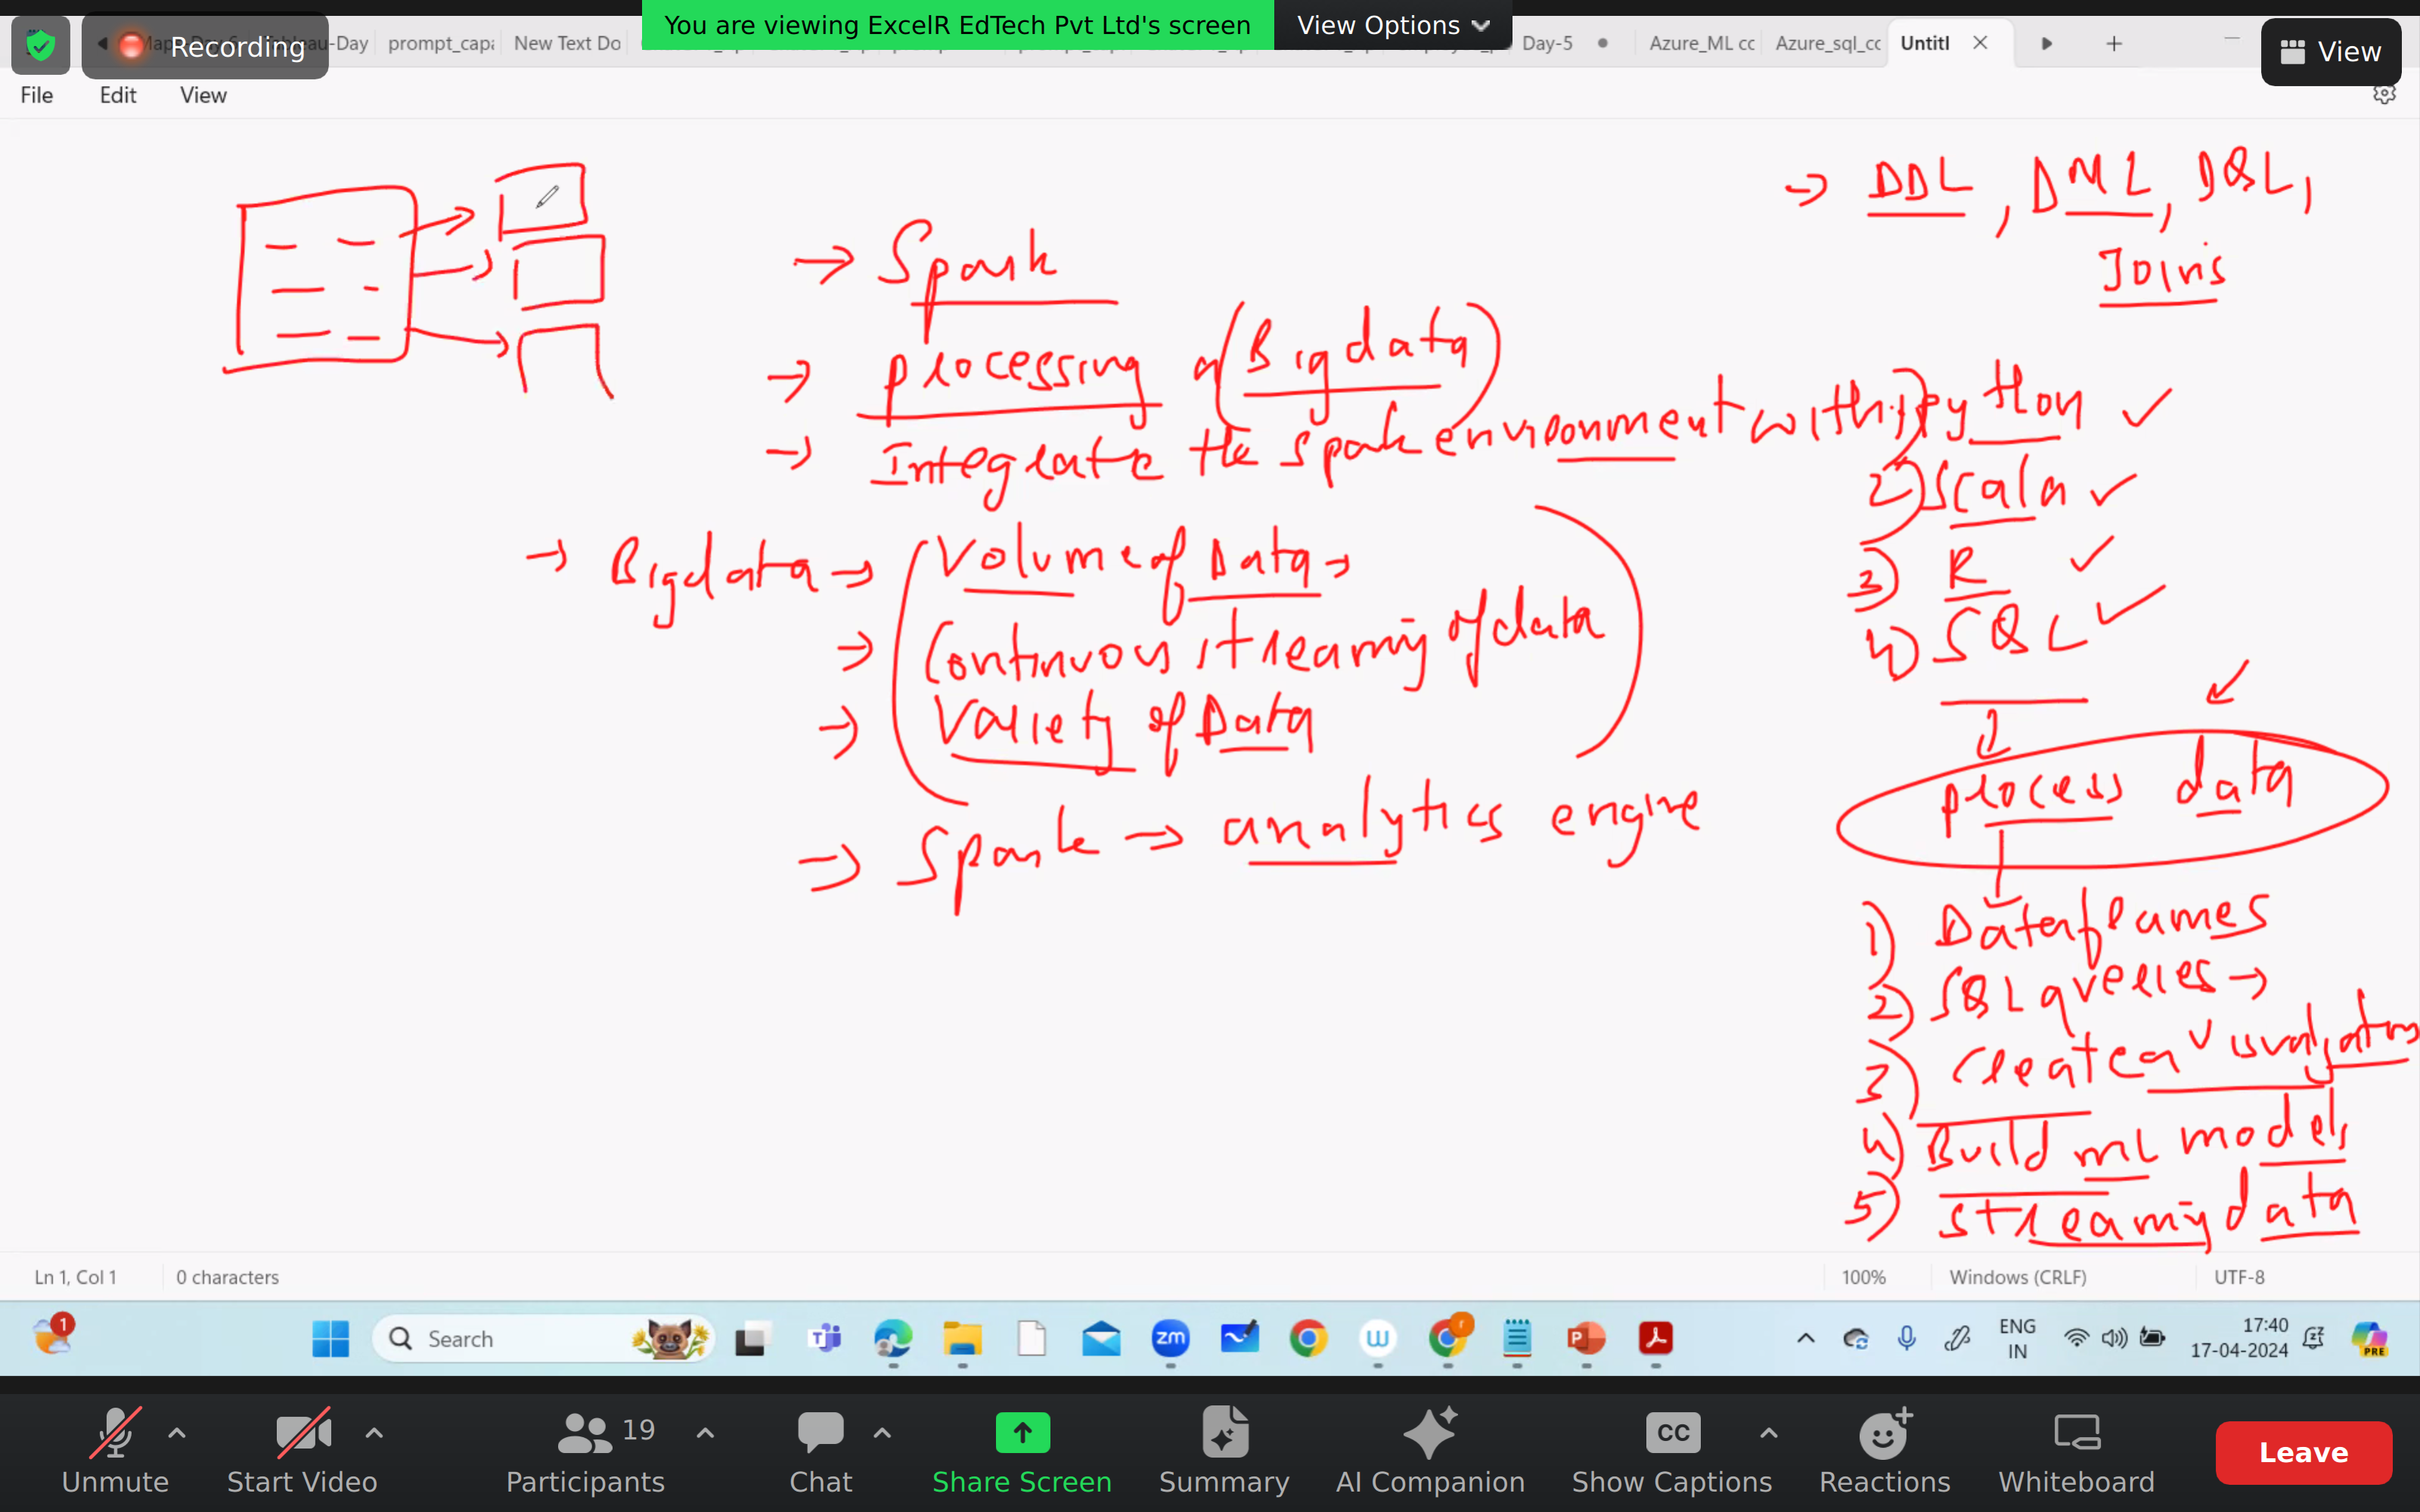 You are viewing ExcelR EdTech Pvt Ltd's screen
View Options
Recording
View
-Day
prompt_capa
New Text Do
Day-5
Azure_ML cc
Azure_sql_cc
Untitl
File Edit View
→ DDL, DML, DQL,
Joins
→ Spark
→ processing of (Bigdata)
→ Integrate the Spark environment with 1) Python ✓
2) Scala ✓
3) R ✓
4) SQL ✓
→ Bigdata → Volume of Data →
→ Continuous streaming of data
→ Variety of Data
→ Spark → analytics engine
process data
1) Dataframes
2) SQL queries →
3) Create a Visualizations
4) Build ML models
5) streaming data
Ln 1, Col 1
0 characters
100%
Windows (CRLF)
UTF-8
1
Search
zm
ENG
IN
17:40
17-04-2024
PRE
Unmute
Start Video
19
Participants
Chat
Share Screen
Summary
AI Companion
CC
Show Captions
Reactions
Whiteboard
Leave